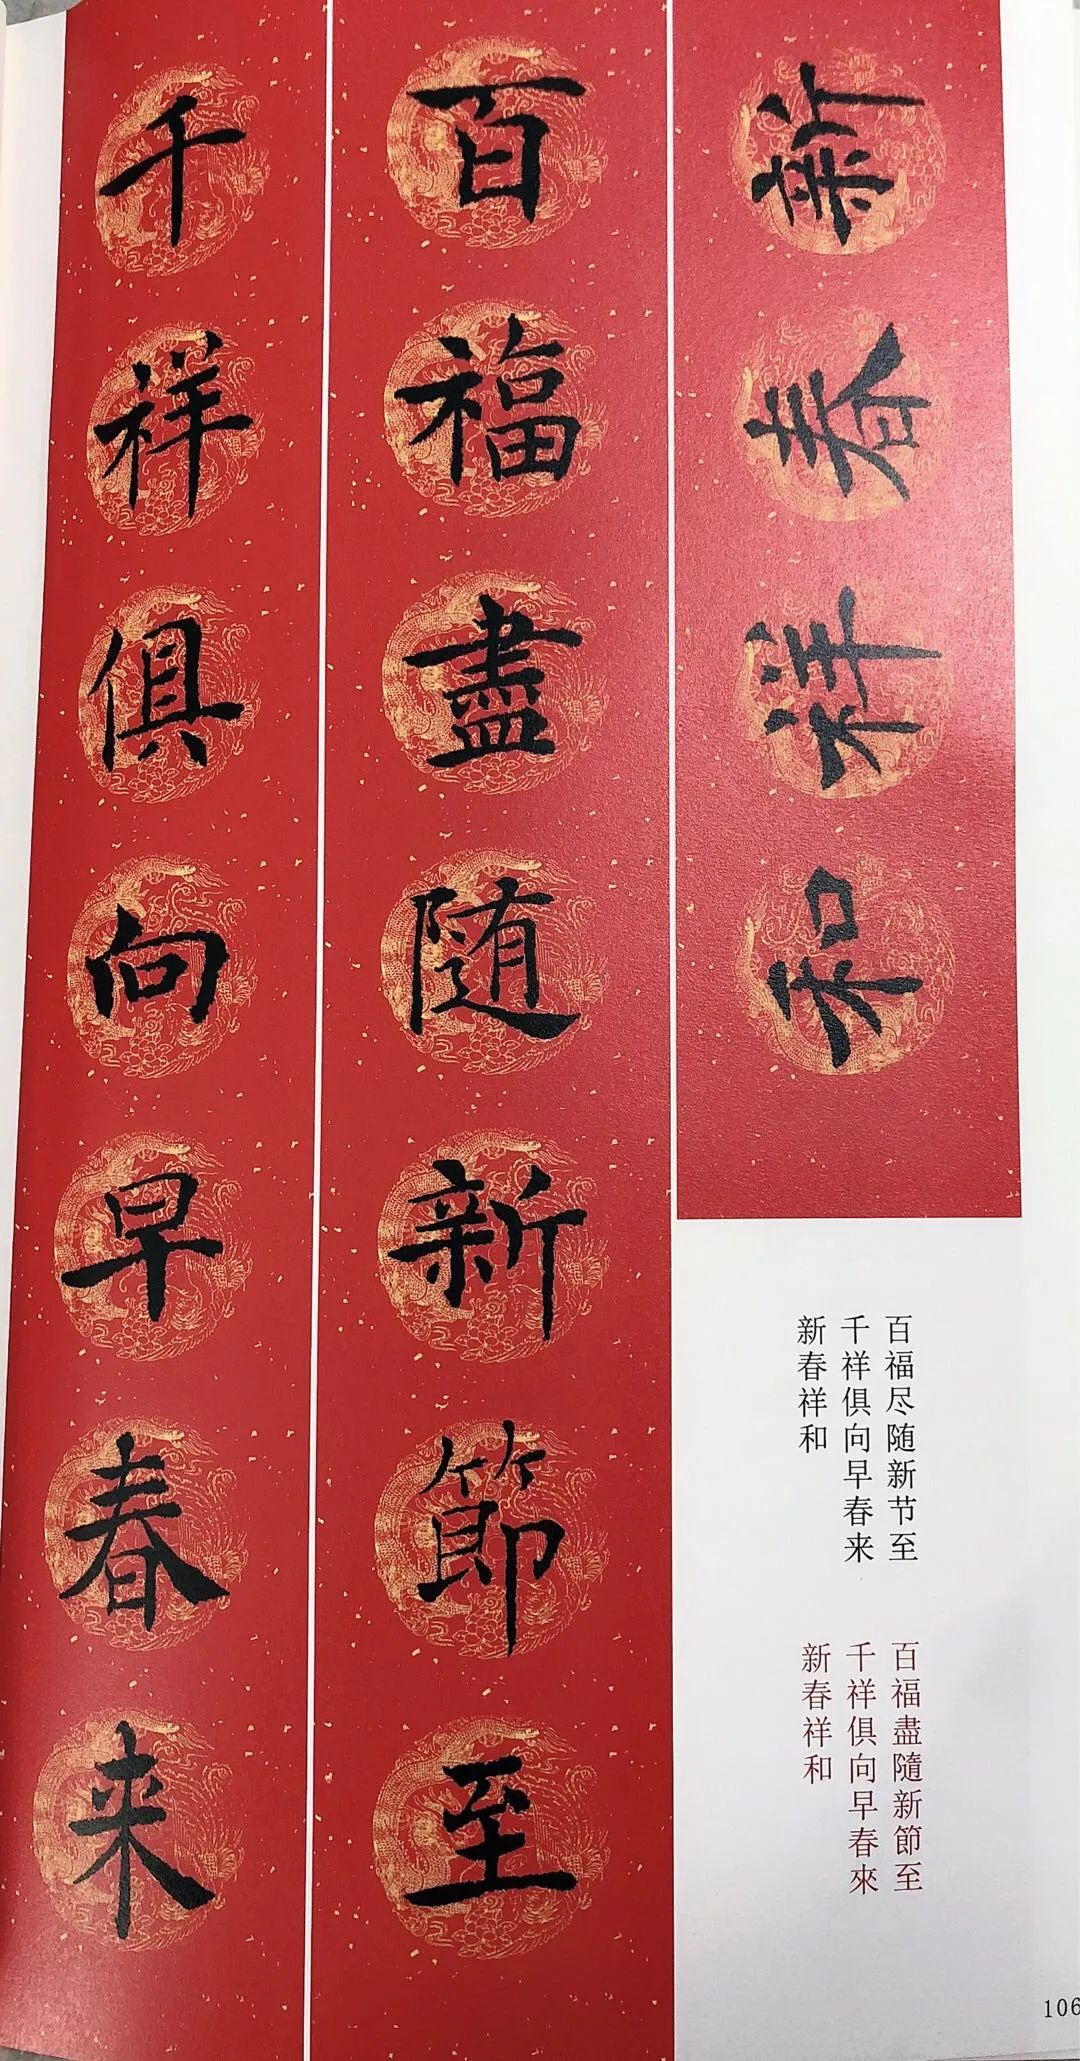 新春祥和
百福盡随新節至
千祥俱向早春来
百福尽随新节至
千祥俱向早春来
新春祥和
百福盡隨新節至
千祥俱向早春來
新春祥和
106